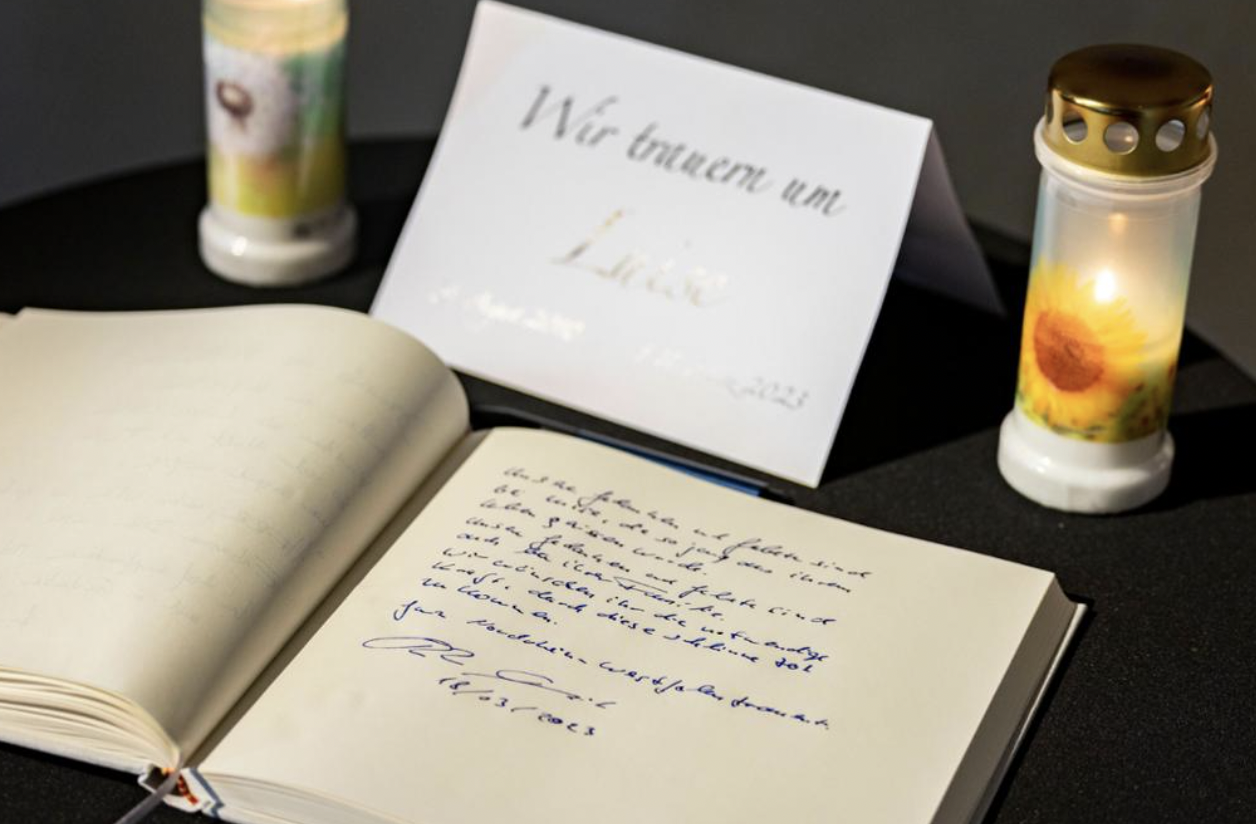 Wir trauern um
Luise
2023
Unsere Gedanken und Gefühle sind
bei Luise, die so jung aus ihrem
Leben gerissen wurde.
Unsere Gedanken und Gefühle sind
auch bei ihrer Familie.
Wir wünschen ihr die notwendige
Kraft, durch diese schlimme Zeit
zu kommen.
Ganz Nordrhein-Westfalen trauert.
18/03/2023